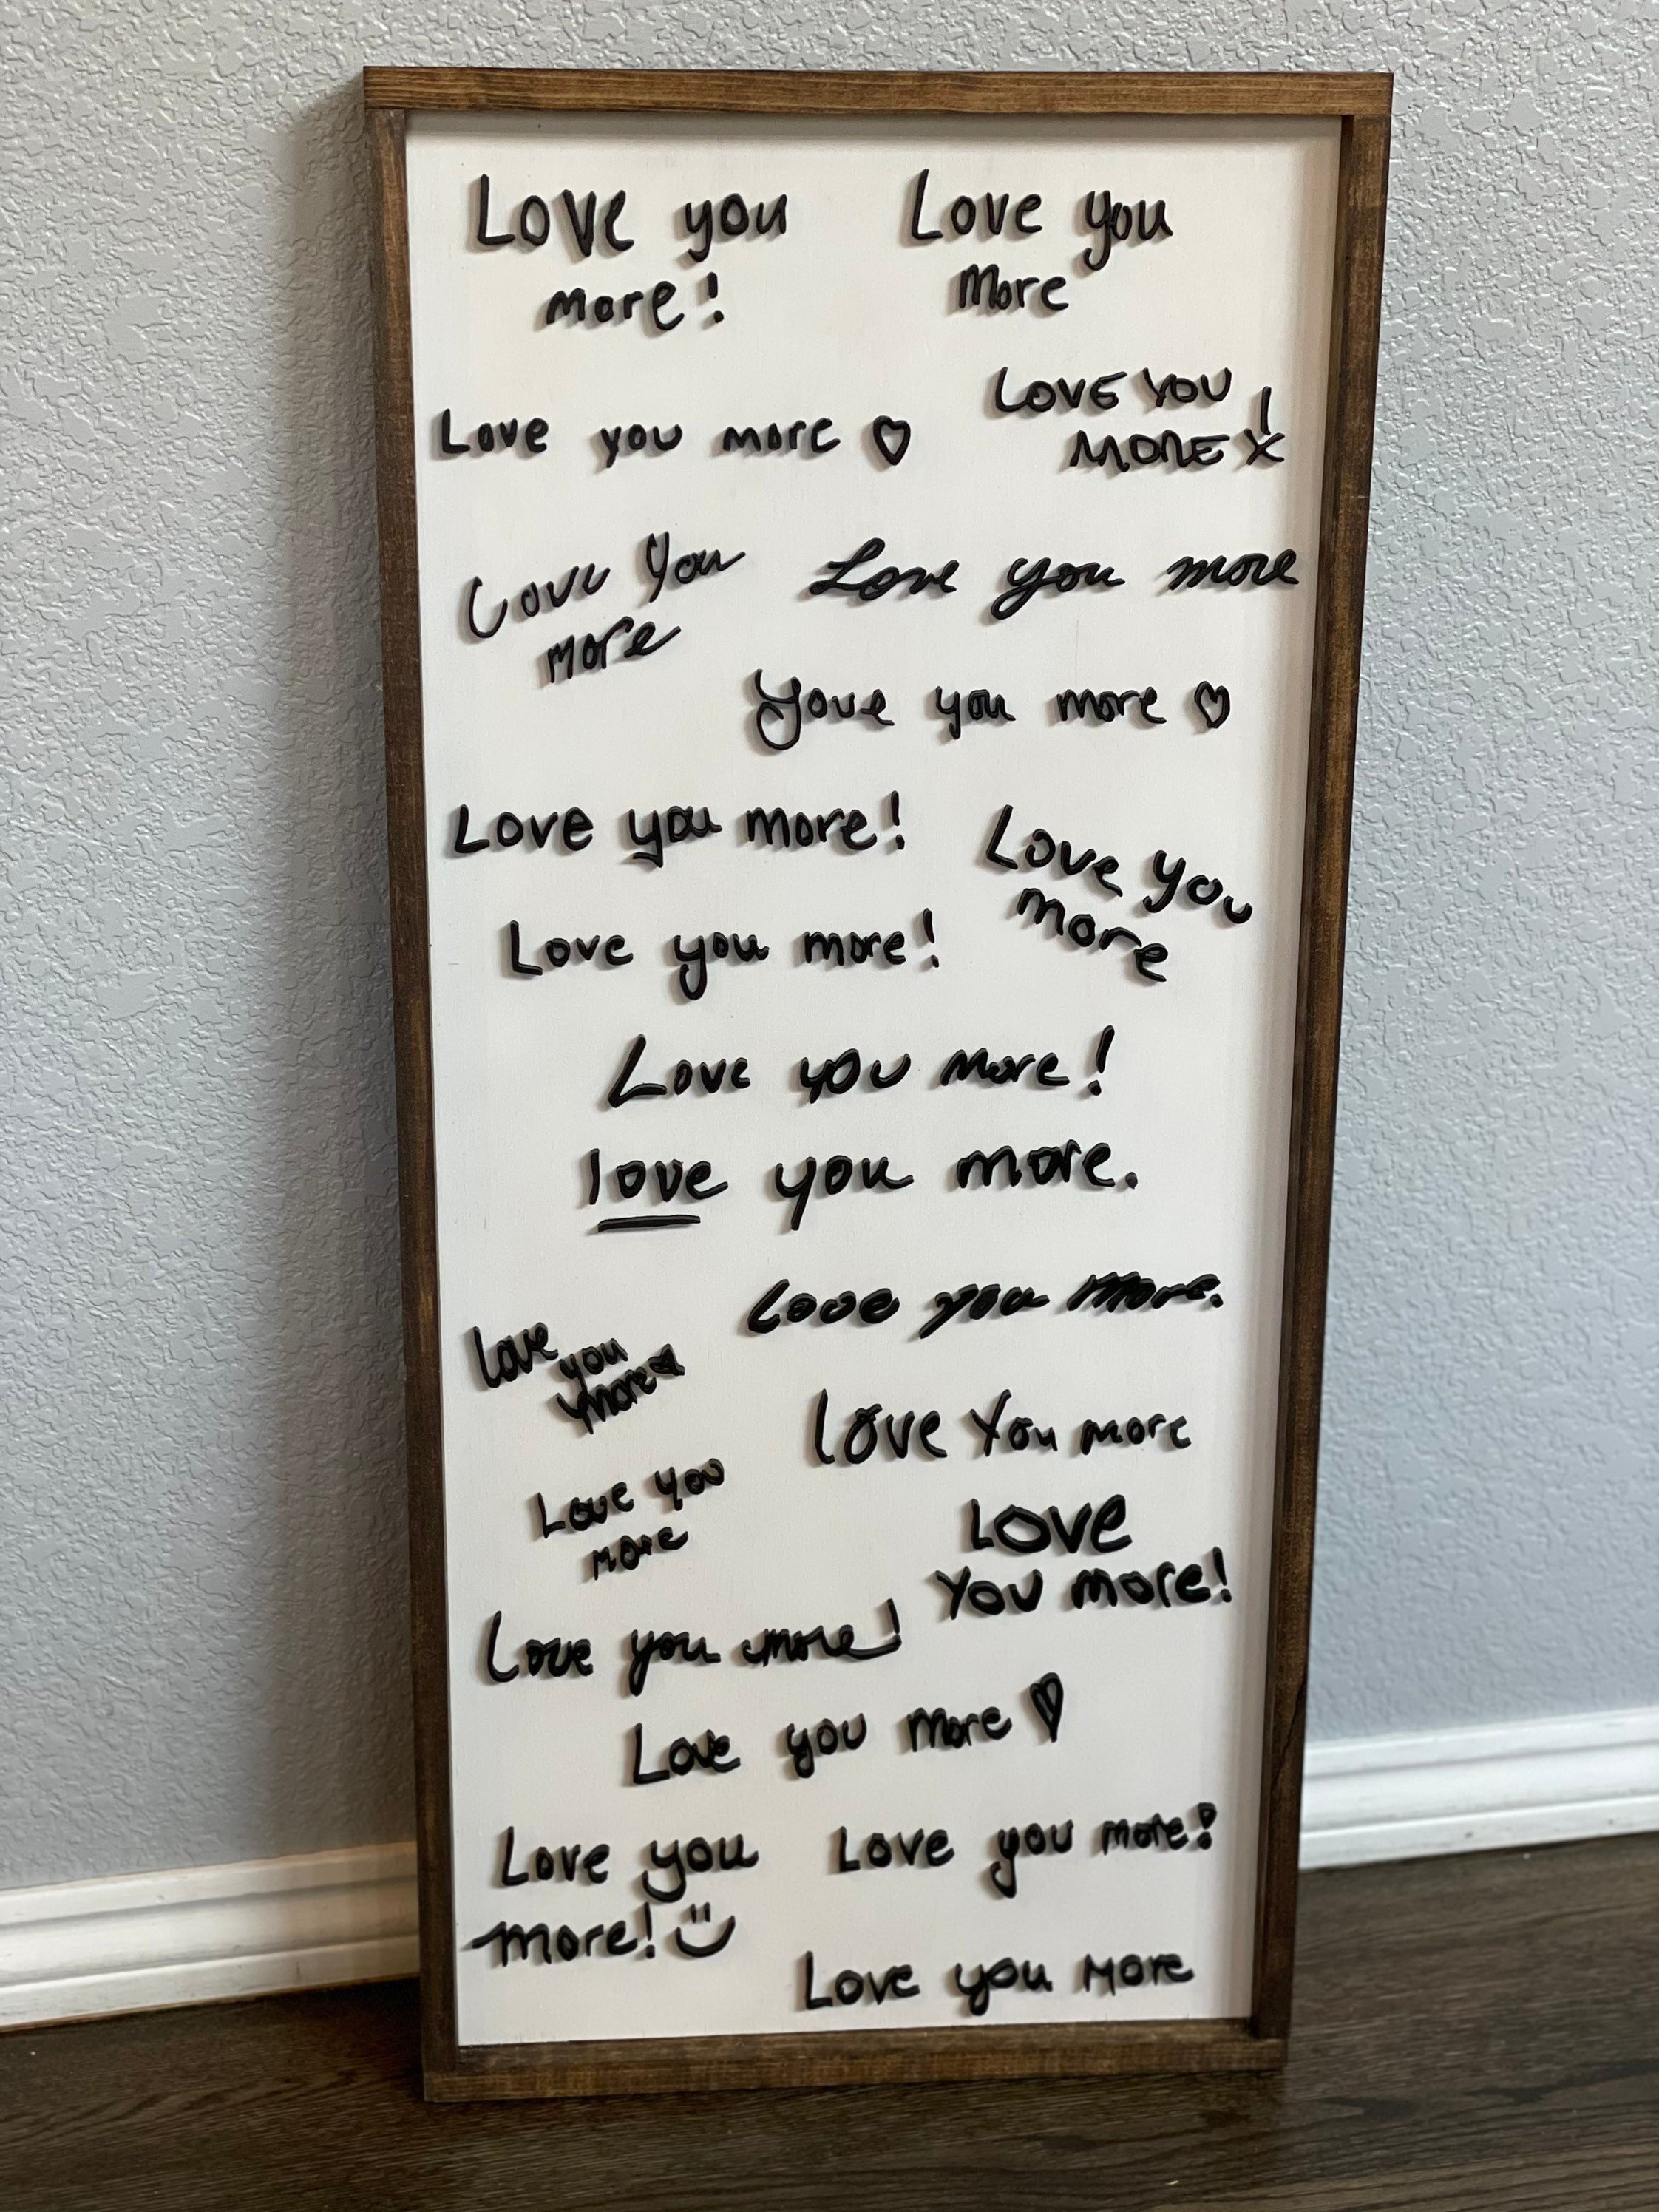 Love you
more!
Love you
more
Love you more ♡
LOVE YOU
MORE!
Love You
more
Love you more
Love you more ♡
Love you more!
Love you
more
Love you more!
Love you more!
love you more.
Love you more.
love
you
more
Love You more
Love you
more
LOve
You more!
Love you more!
Love you more ♡
Love you
more! ☺
Love you more!
Love you more